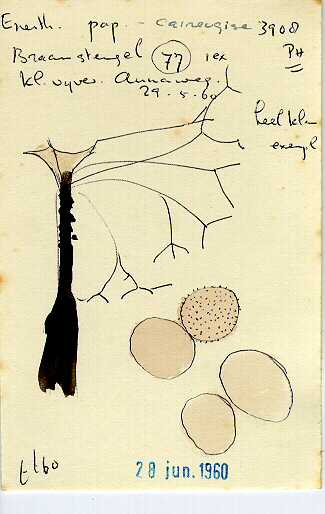 Enerth. pap. - 3908
Braamstengel 77 1 ex PH
kl. vyver. Annaweg.
29.5.60
heel klein
exempl
t/60
28 jun. 1960